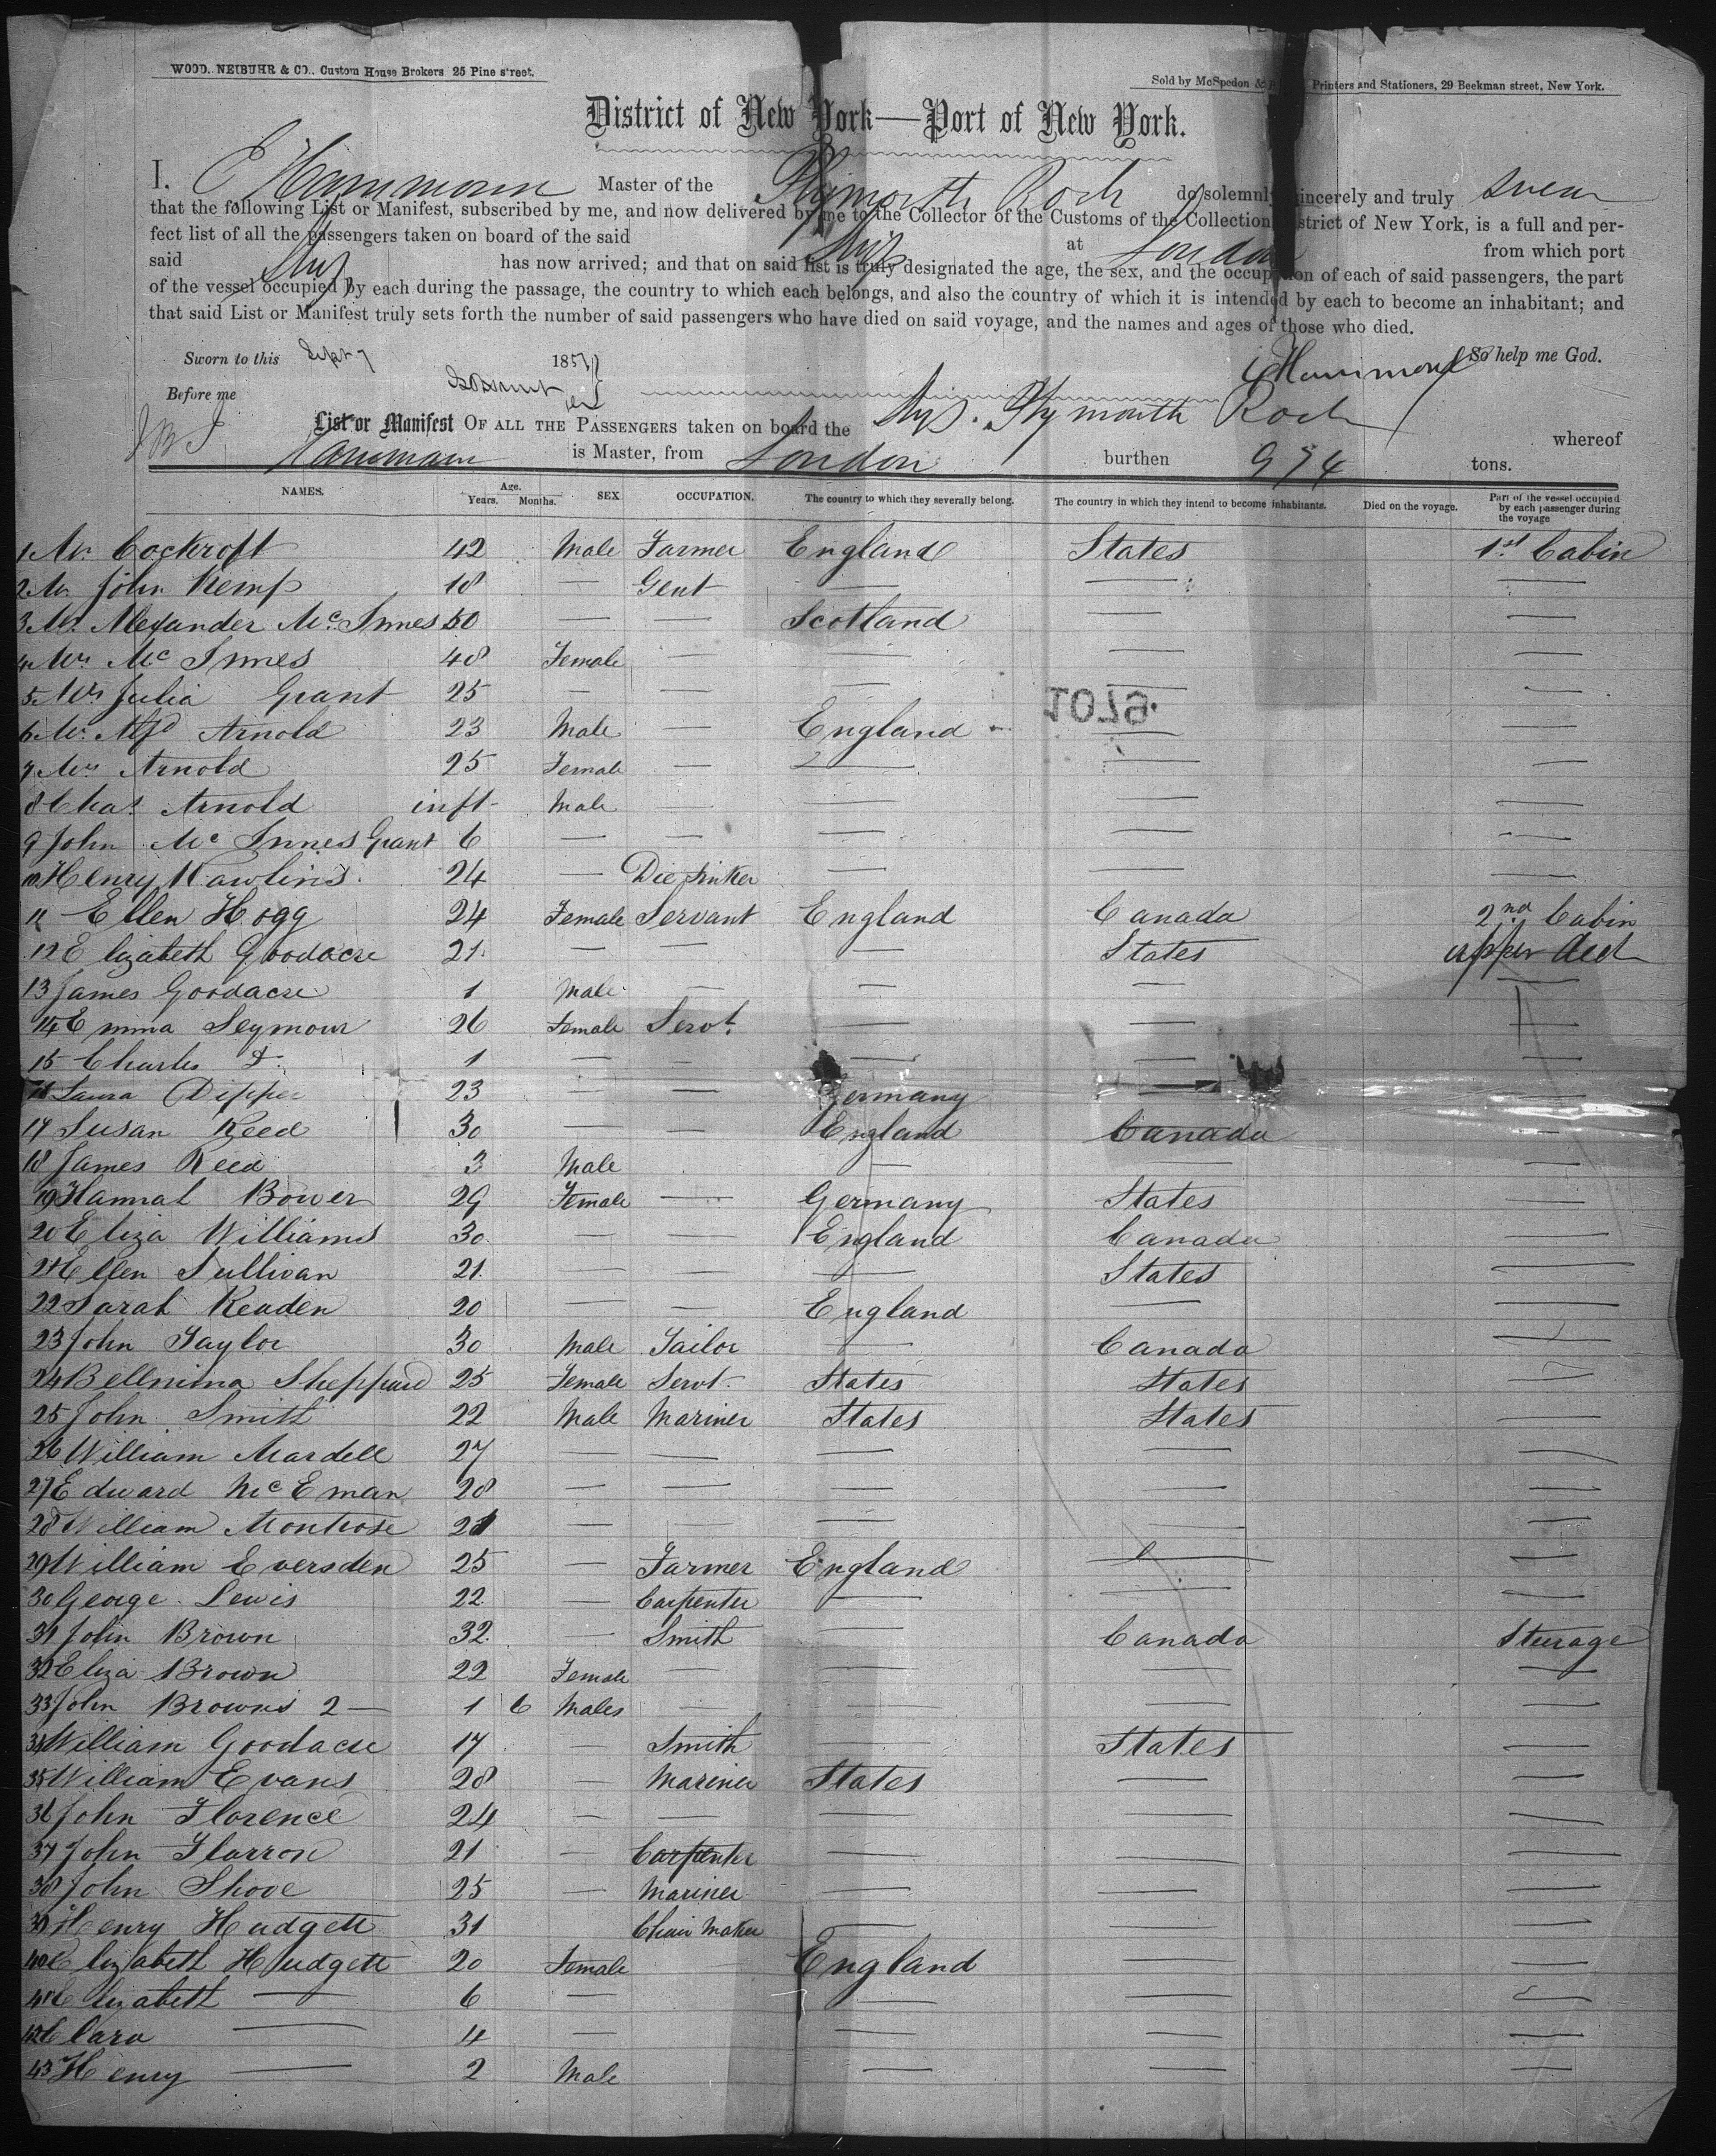 WOOD, NEIBUHR & CO., Custom House Brokers 25 Pine street.
Sold by McSpedon & Printers and Stationers, 29 Beekman street, New York.
District of New York—Port of New York.
I. E Hammann Master of the Plymouth Rock do solemnly sincerely and truly swear
that the following List or Manifest, subscribed by me, and now delivered by me to the Collector of the Customs of the Collection District of New York, is a full and per-
fect list of all the passengers taken on board of the said Ship at London from which port
said Ship has now arrived; and that on said list is truly designated the age, the sex, and the occupation of each of said passengers, the part
of the vessel occupied by each during the passage, the country to which each belongs, and also the country of which it is intended by each to become an inhabitant; and
that said List or Manifest truly sets forth the number of said passengers who have died on said voyage, and the names and ages of those who died.
Sworn to this Sept 7 1857 So help me God.
Before me E Hammond
List or Manifest OF ALL THE PASSENGERS taken on board the Ship Plymouth Rock whereof
Hammann is Master, from London burthen 974 tons.
NAMES. Age. Years. Months. SEX. OCCUPATION. The country to which they severally belong. The country in which they intend to become inhabitants. Died on the voyage. Part of the vessel occupied by each passenger during the voyage
1 Mr. Cockroft 42 Male Farmer England States 1st Cabin
2 Mr. John Kemp 18 — Gent — — —
3 Mr. Alexander McInnes 50 — — Scotland — —
4 Mrs McInnes 48 Female — — — —
5 Mrs Julia Grant 25 — — — — —
1079.
6 Mr. Alfd Arnold 23 Male — England — —
7 Mrs Arnold 25 Female — — — —
8 Chas. Arnold inft- Male — — — —
9 John McInnes Grant 6 — — — — —
10 Henry Rawlins 24 — Die Sinker — — —
11 Ellen Hogg 24 Female Servant England Canada 2nd Cabin
12 Elizabeth Goodacre 21 — — — States upper deck
13 James Goodacre 1 Male — — — —
14 Emma Seymour 26 Female Servt. — — —
15 Charles Do. 1 — — — — —
16 Laura Dipper 23 — — Germany — —
17 Susan Reed 30 — — England Canada —
18 James Reed 3 Male — — —
19 Hannah Bower 29 Female — Germany States —
20 Eliza Williams 30 — — England Canada —
21 Ellen Sullivan 21 — — — States —
22 Sarah Readen 20 — — England — —
23 John Taylor 30 Male Tailor — Canada —
24 Bellmina Sheppard 25 Female Servt. States States —
25 John Smith 22 Male Mariner States States —
26 William Mardell 27 — — — — —
27 Edward McEman 28 — — — — —
28 William Montrose 21 — — — — —
29 William Eversden 25 — Farmer England — —
30 George Lewis 22 — Carpenter — — —
31 John Brown 32 — Smith — Canada Steerage
32 Eliza Brown 22 Female — — — —
33 John Browns 2 — 1 6 Males — — — —
34 William Goodacre 17 — Smith — States —
35 William Evans 28 — Mariner States — —
36 John Florence 24 — — — — —
37 John Flarron 21 — Carpenter — — —
38 John Shove 25 — Mariner — — —
39 Henry Hudgett 31 Chair Maker — — —
40 Elizabeth Hudgett 20 Female England — —
41 Elizabeth — 6 — — — —
42 Clara — 4 — — — —
43 Henry — 2 Male — — —